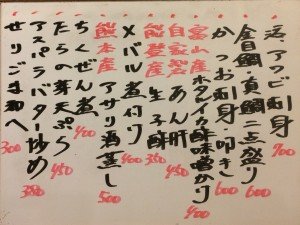 活 アワビ刺身 700
金目鯛・真鯛 二点盛り 600
かつお刺身・叩き 600
富山産 ホタルイカ酢味噌かけ 400
自家製 あん肝 450
能登産 生子酢 350
メバル煮付け 400
熊本産 アサリ酒蒸し 500
ちくぜん煮 400
たらの芽天ぷら 450
アスパラバター炒め 380
せりごま和へ 300